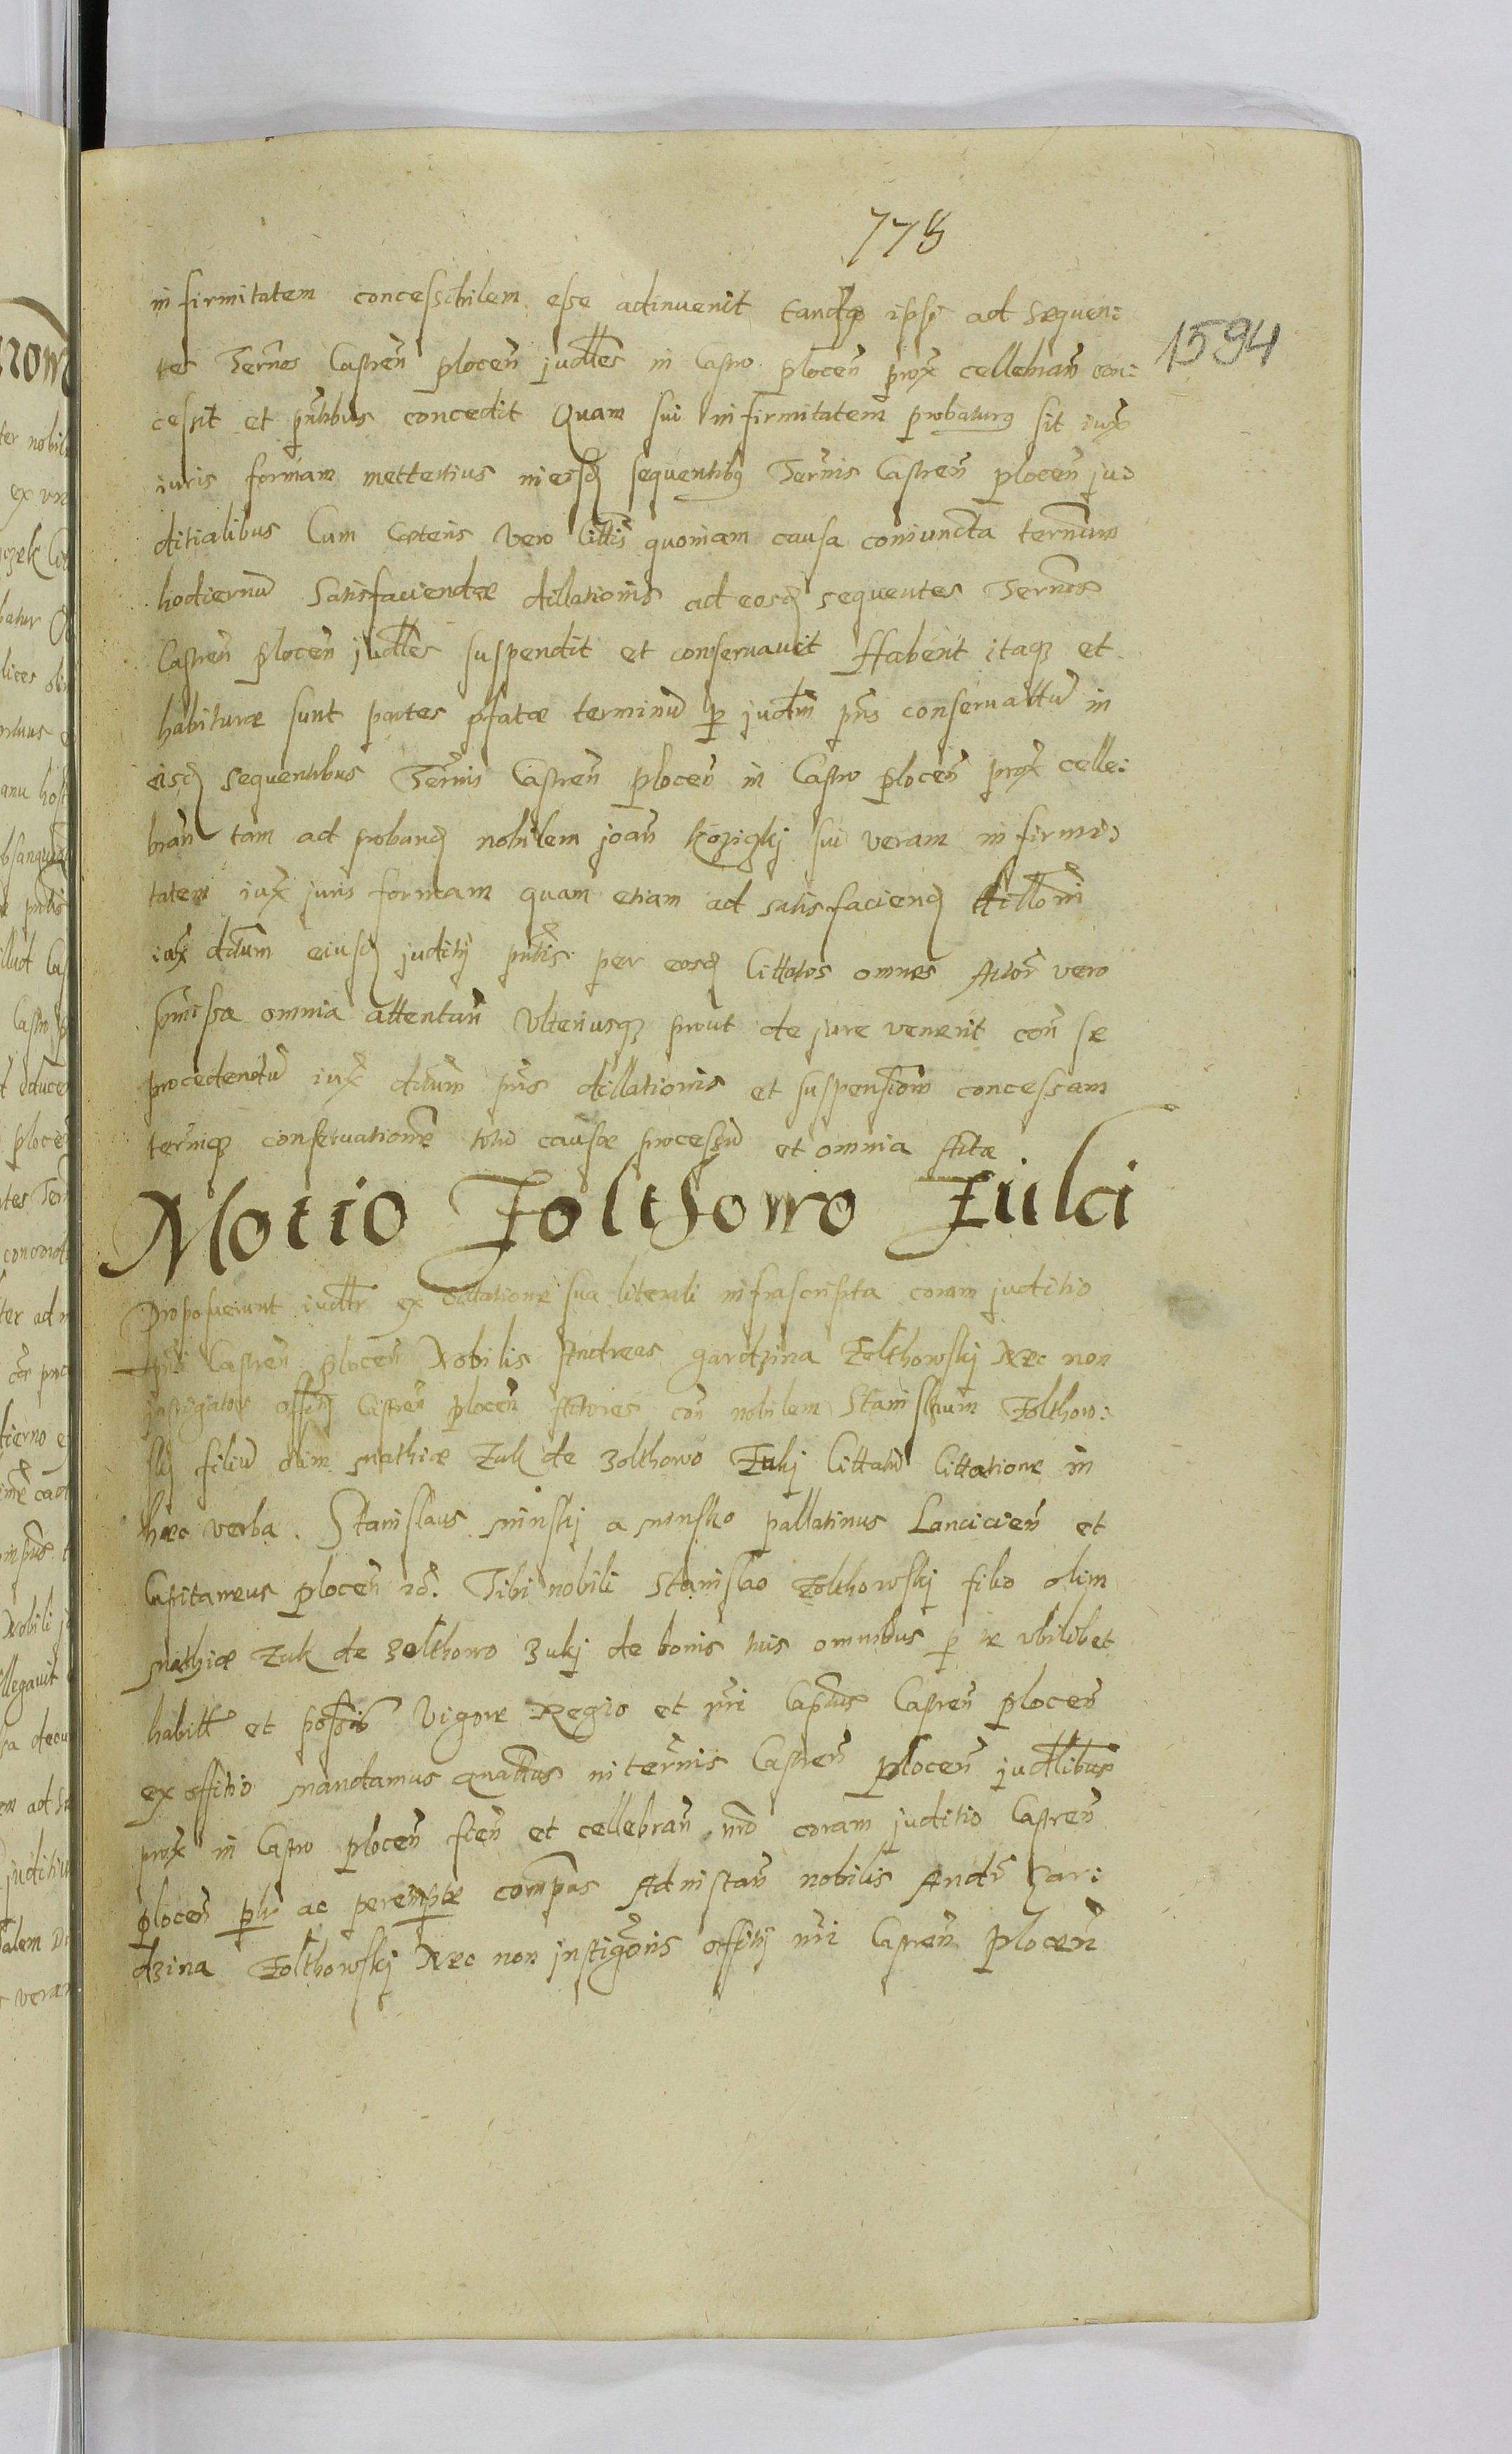 778
1594
infirmitatem concessibilem esse adinuenit eandq ipsi ad sequen:
tes Terños Castreñ plocen̄ judłes in Castro plocen̄ prox̄ cellebrañ con:
cessit et pñtibus concedit Quam sui infirmitatem probaturus sit iux̄
iuris formam mettertius in eisd sequentibus Termis Castreñ plocen̄ ju:
ditialibus Cum Cæteris vero Cittis quoniam causa coniuncta termum
hodiernū Satisfaciendæ dillationis ad eosd sequentes Termos
Castreñ plocen̄ judłes suspendit et conseruauit Habent itaq et
habituræ sunt partes pfatæ terminū p judm pns conseruattū in
eisd sequentibus Termis Castreñ plocen̄ in Castro plocen̄ prox̄ celle:
brañ tam ad proband nobilem joañ koziczkj sui veram infirmi:
tatem iux̄ juris formam quam etiam ad satisfaciend dilloni
iux̄ ditum eiusd juditij pñtis per eosd Cittatos omnes Actor vero
pmissa omnia attentañ Vlteriusq prout de jure venerit con̄ se
procedendū iux̄ ditum pns dillationis et suspensiom concessam
termiq conseruatione totū causæ processū et omnia Acta
Motio Zolthowo Zuki
Proposuerunt iudłr ex Cittatione sua literali infrascripta coram juditio
pñti Castreñ plocen̄ Nobilis Andreas gardzina Zolthowskj Nec non
instigator offitij Castreñ plocen̄ Actores con̄ nobilem Stanislaum Zolthow:
skj filiū olim Mathiæ Zuk de Zolthowo Zukj Cittatū Cittatione in
hæc verba. Stanislaus Minskj a Minsko pallatinus Lancicieñ et
Capitaneus plocen̄ Tibi nobili Stanislao Zolthowskj filio olim
Mathiæ Zuk de Zolthowo Zukj de bonis tuis omnibus p te vbilibet
habitt et possis Vigore Regio et nri Captus Castreñ plocen̄
ex offitio Mandamus quattus in termis Castreñ plocen̄ judłibus
prox̄ in Castro plocen̄ fień et cellebrañ coram juditio Castreñ
plocen̄ plr ac perempte compas Ad instañ nobilis Andr Gar:
dzina Zolthowskj Nec non jnstigoris offitij nri Castreñ Plocen̄